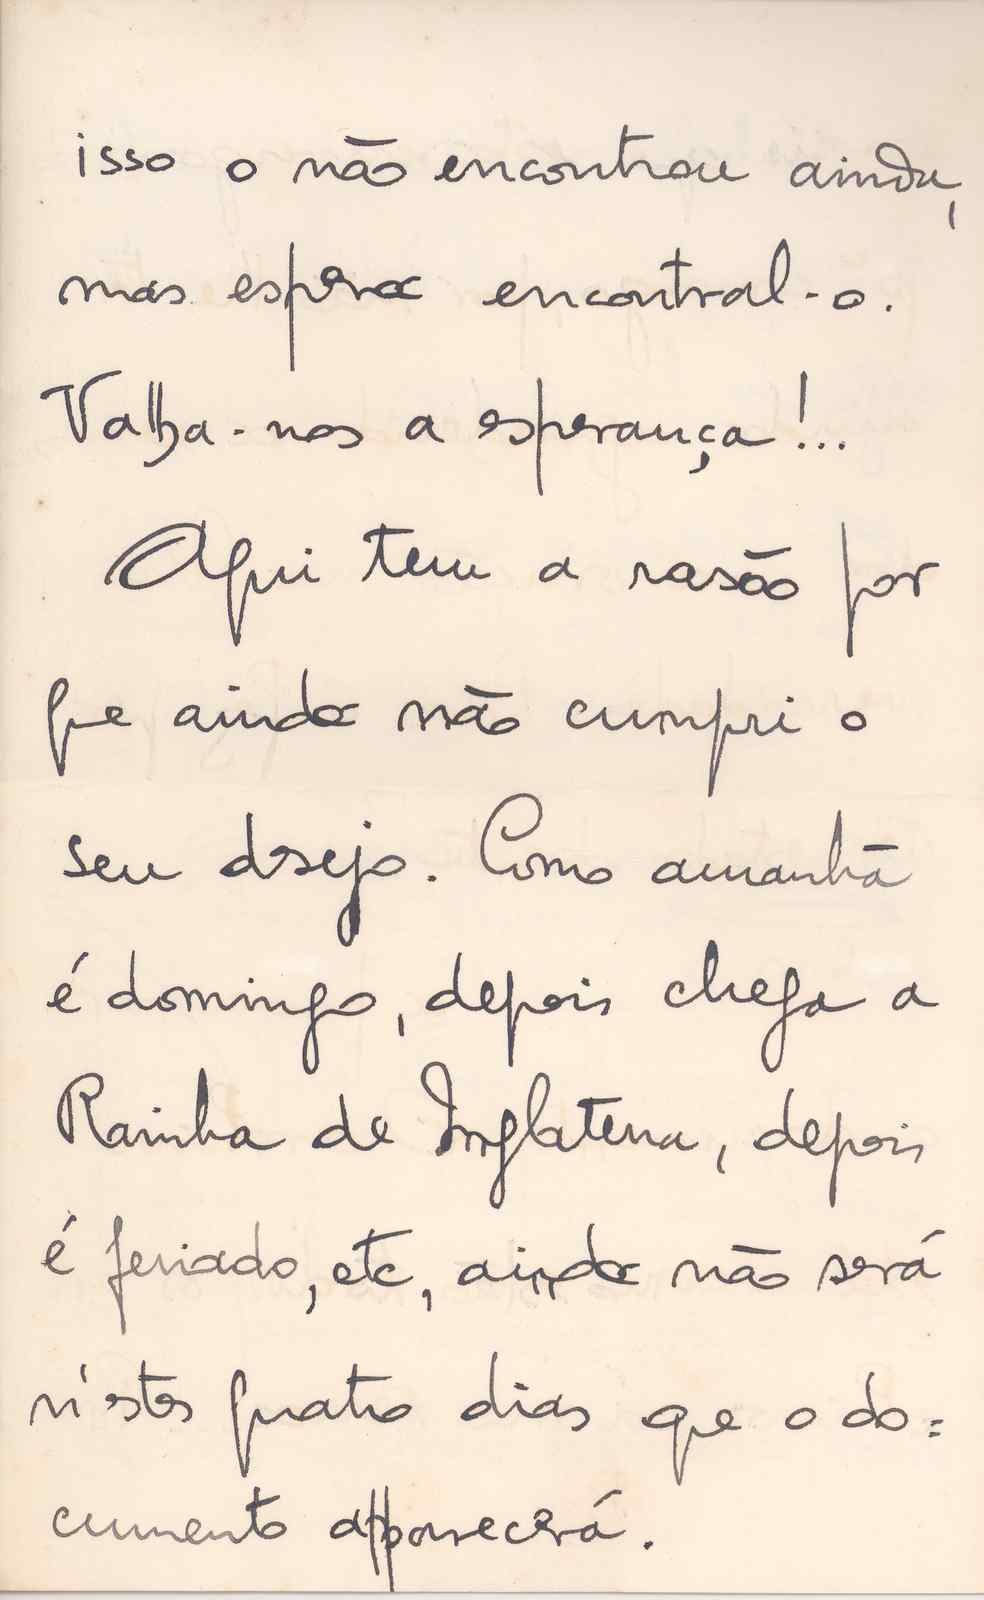 isso o não encontrou ainda,
mas espera encontral-o.
Valha-nos a esperança!...
Aqui tem a rasão por
que ainda não cumpri o
seu desejo. Como amanhã
é domingo, depois chega a
Rainha de Inglaterra, depois
é feriado, etc, ainda não será
n'estes quatro dias que o do=
cumento apparecerá.